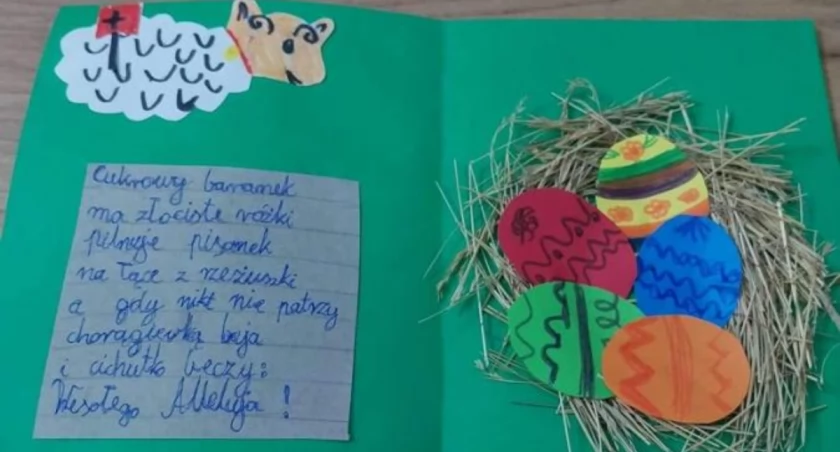 Cukrowy baranek
ma złociste różki
pilnuje pisanek
na łące z rzeżuszki
a gdy nikt nie patrzy
chorągiewką buja
i cichutko beczy:
Wesołego Alleluja !